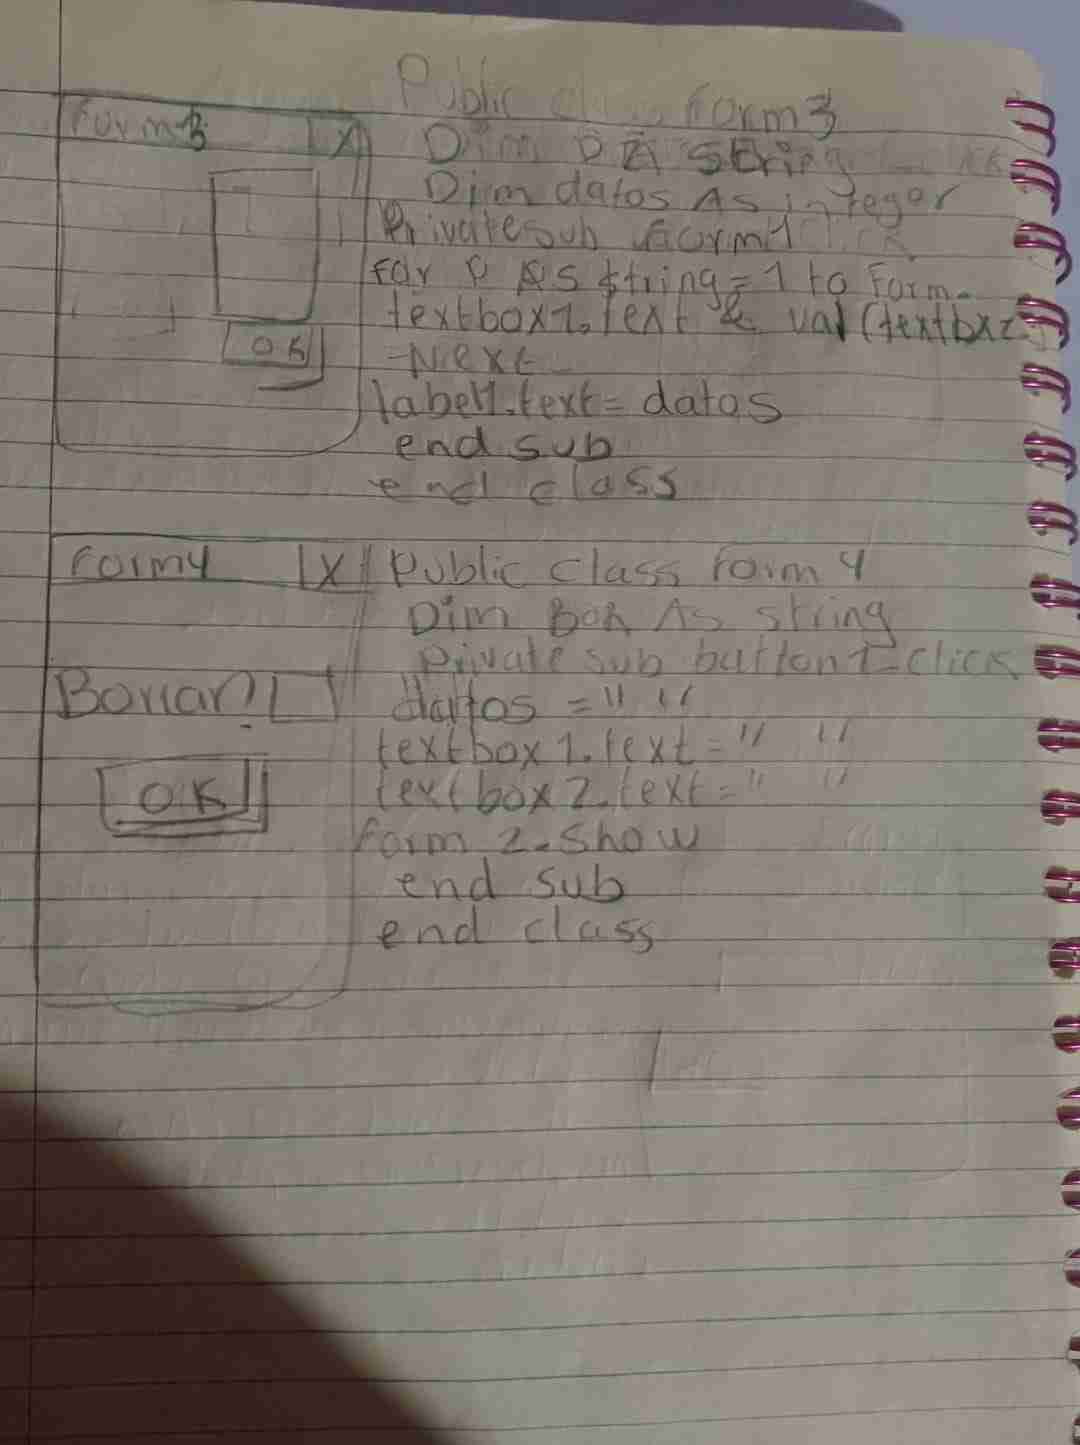 Public form3
Form3 X
Dim As string
Dim datos As integer
Private sub form1
For P As string = 1 to Form.
textbox1.text & val(textbx2
OK
Next
label1.text = datos
end sub
end class
Form4 X
Public class form 4
Dim BOR As string
Private sub button1-click
Borrar?
datos = " "
textbox1.text = " "
OK
textbox2.text = " "
form 2.show
end sub
end class